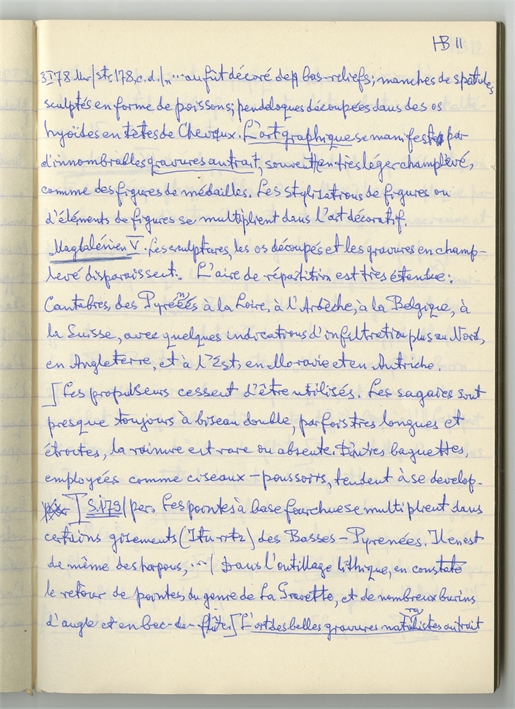 HB 11
3I78 Uur/St. 178, c.d./„... au fût décoré de bas-reliefs; manches de spatules
sculptés en forme de poissons; pendeloques découpées dans des os
hyoïdes en têtes de Chevaux. L'art graphique se manifeste par
d'innombrables gravures au trait, souvent en très léger champlevé,
comme des figures de médailles. Les stylisations de figures ou
d'éléments de figures se multiplient dans l'art décoratif.
Magdalénien V. Les sculptures, les os découpés et les gravures en champ-
levé disparaissent. L'aire de répartition est très étendue:
Cantabres, des Pyrénées à la Loire, à l'Ardèche, à la Belgique, à
la Suisse, avec quelques indications d'infiltration plus au Nord,
en Angleterre, et à l'Est, en Moravie et en Autriche.
] Les propulseurs cessent d'être utilisés. Les sagaies sont
presque toujours à biseau double, parfois très longues et
étroites, la rainure est rare ou absente. D'autres baguettes,
employées comme ciseaux-poussoirs, tendent à se develop-
] S.179/ per. Les pointes à base fourchue se multiplient dans
certains gisements (Isturitz) des Basses-Pyrenées. Il en est
de même des harpons, .../ Dans l'outillage lithique, on constate
le retour de pointes du genre de La Gravette, et de nombreux burins
d'angle et en bec-de-flûte.] L'art des belles gravures naturalistes au trait